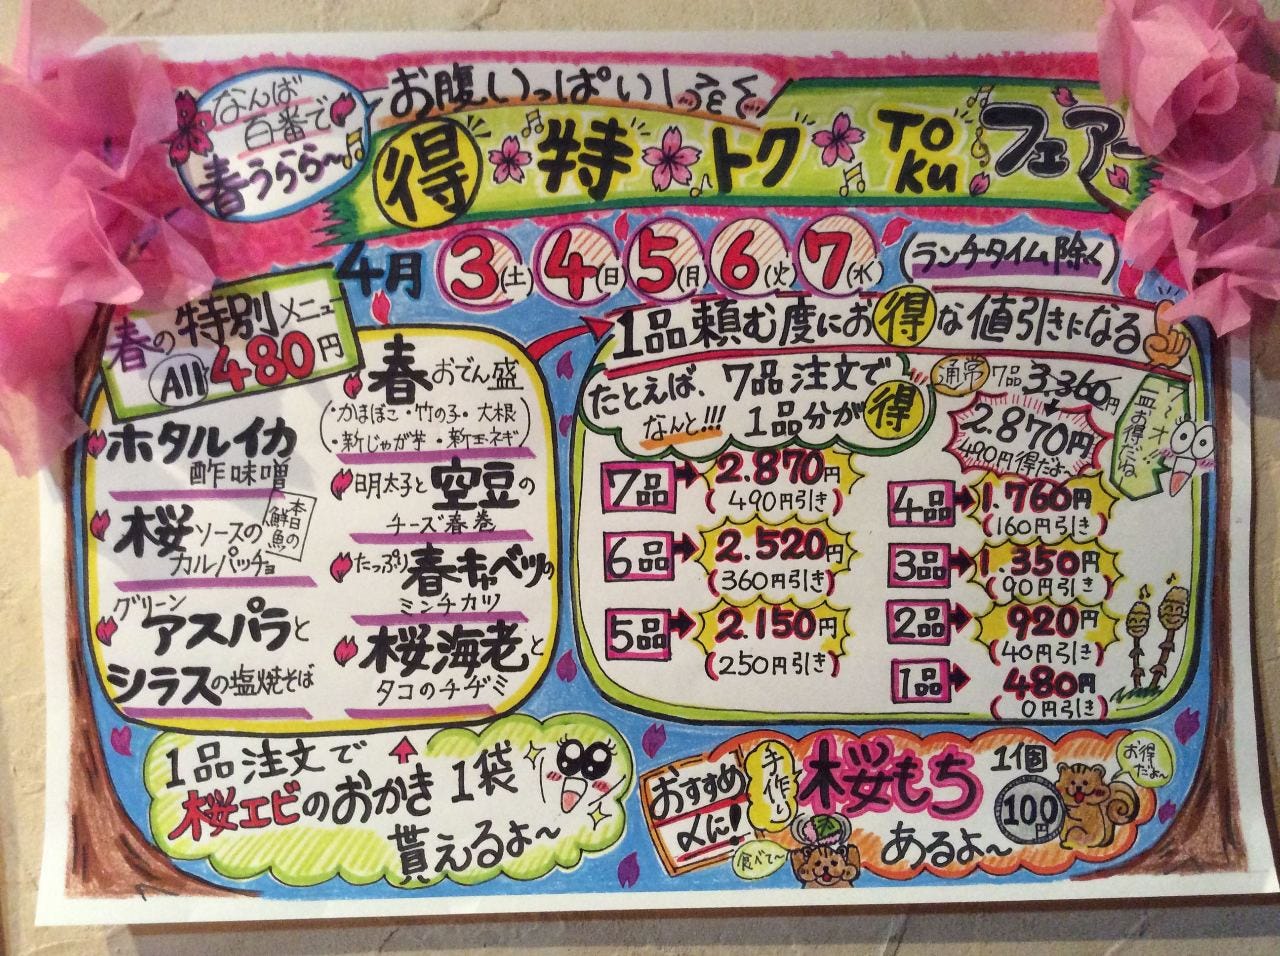 なんば
百番で
春うらら〜
お腹いっぱい
得 特 トク TOKU フェアー
4月 3(土) 4(日) 5(月) 6(火) 7(水) (ランチタイム除く)
春の特別メニュー
All 480円
ホタルイカ
酢味噌
桜ソースの
本日の鮮魚
カルパッチョ
グリーン
アスパラと
シラスの塩焼そば
春おでん盛
(・かまぼこ・竹の子・大根
・新じゃが芋・新玉ネギ)
明太子と空豆の
チーズ春巻
たっぷり春キャベツの
ミンチカツ
桜海老と
タコのチヂミ
1品頼む度にお得な値引きになる
たとえば、7品注文で
なんと!!! 1品分が得
通常 7品 3,360円
2.870円
490円得だよ
7品 2.870円
(490円引き)
6品 2.520円
(360円引き)
5品 2.150円
(250円引き)
4品 1.760円
(160円引き)
3品 1.350円
(90円引き)
2品 920円
(40円引き)
1品 480円
(0円引き)
1品注文で
桜エビのおかき 1袋
貰えるよ〜
おすすめ
〆に!
手作り
桜もち 1個
100円
あるよ〜
食べて〜
お得
だよ〜